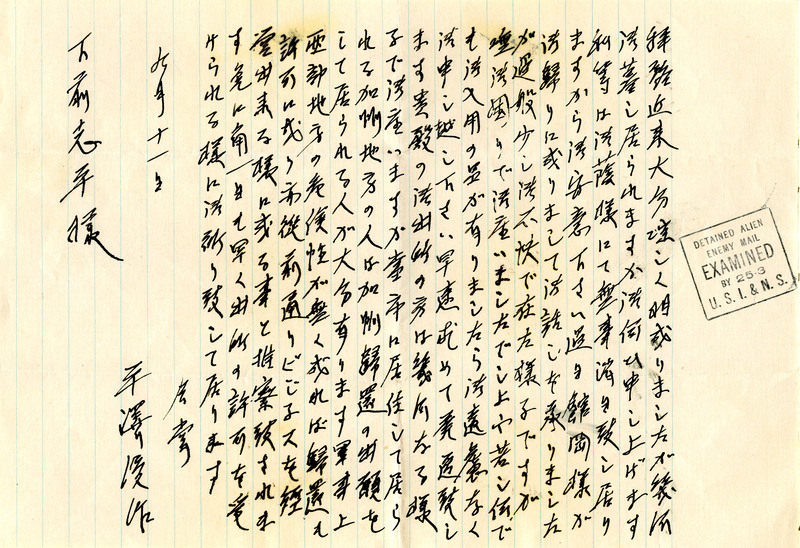 拝啓近来大分涼しく相成りましたが幾何
御暮し居られますか御伺ひ申し上げます
私等は御蔭様にて無事消日致し居り
ますから御安意下さい過日館岡様が
御帰りに成りまして御話しを承りました
が過般少し御不快で在た様子ですが
御困りで御座いましたでしょう若し何で
も御入用の品が有りましたら御遠慮なく
御申し越し下さい早速求めて発送致し
ます貴殿の御出所の方は幾何なる様
子で御座いますか当市に居住して居ら
れる加州地方の人は加州帰還の出願を
して居られる人が大分有ります軍事上
西部地方の危険性が無く成れば帰還も
許可に成り亦従前通りビジネスを経
営出来る様に成る事と推察致されま
す兎に角一日も早く出所の許可を受
けられる様に御祈り致して居ります
九月十一日
平澤
下前志平様
DETAINED ALIEN
ENEMY MAIL
EXAMINED
BY 25-3
U.S.I.& N.S.